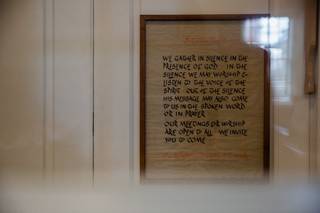 WE GATHER IN SILENCE IN THE
PRESENCE OF GOD IN THE
SILENCE WE MAY WORSHIP &
LISTEN TO THE VOICE OF THE
SPIRIT OUT OF THE SILENCE
HIS MESSAGE MAY ALSO COME
TO US IN THE SPOKEN WORD
OR IN PRAYER
OUR MEETINGS FOR WORSHIP
ARE OPEN TO ALL WE INVITE
YOU TO COME